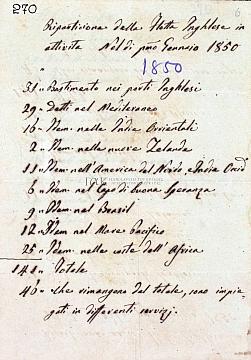 270
Ripartizione della Flotta Inglese in
attività Nel dì pmo Gennaio 1850
1850
31 " Bastimento nei porti Inglesi
29 " Detti nel Mediteraneo
16 " Idem nelle Indie Orrientali
2 " Idem nelle nuove Zelanda
11 " Idem nell'America del Nordo, e India
6 " Idem nel Capo di buona Speranza
9 " Idem nel Brasil
12 " Idem nel Mare Pacifico
25 " Idem nelle coste dell'Africa
141 " Totale
46 " che rimangono del totale, sono impie
gati in differenti servizj.